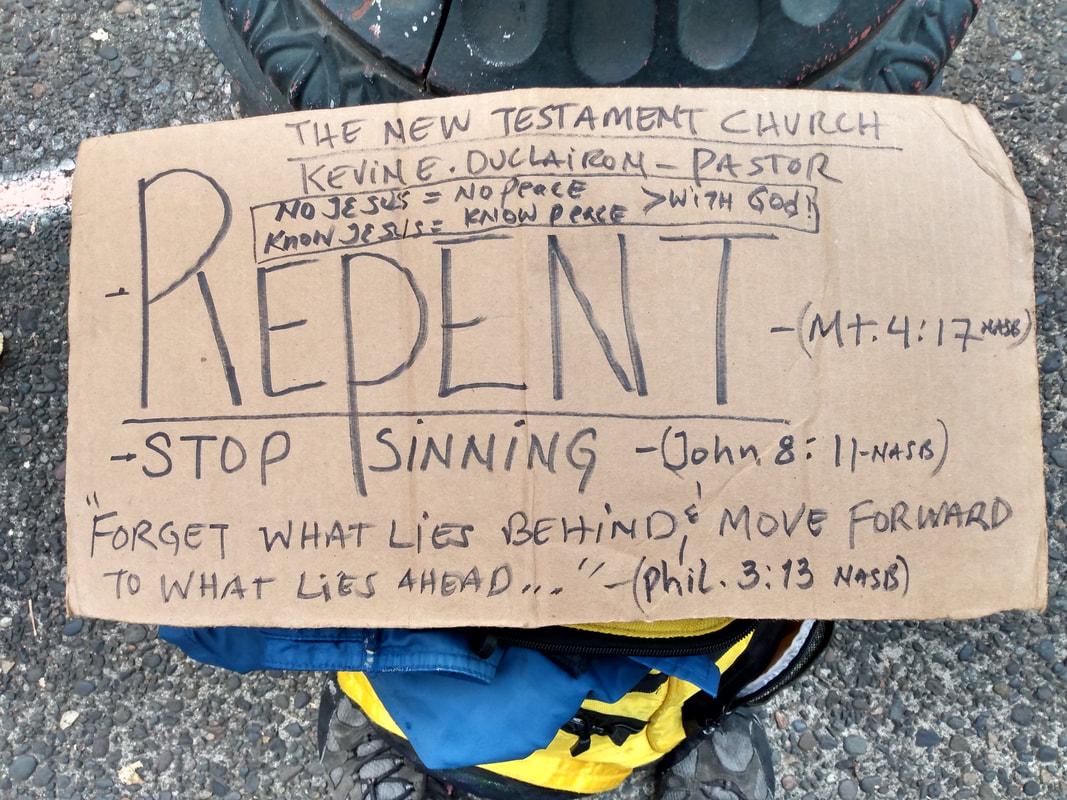 THE NEW TESTAMENT CHURCH
KEVIN E. DUCLAIROM - PASTOR
NO JESUS = NO PEACE
KNOW JESUS = KNOW PEACE > WITH GOD!
- REPENT - (Mt. 4:17 NASB)
- STOP SINNING - (John 8:11-NASB)
"FORGET WHAT LIES BEHIND, & MOVE FORWARD
TO WHAT LIES AHEAD..." - (Phil. 3:13 NASB)